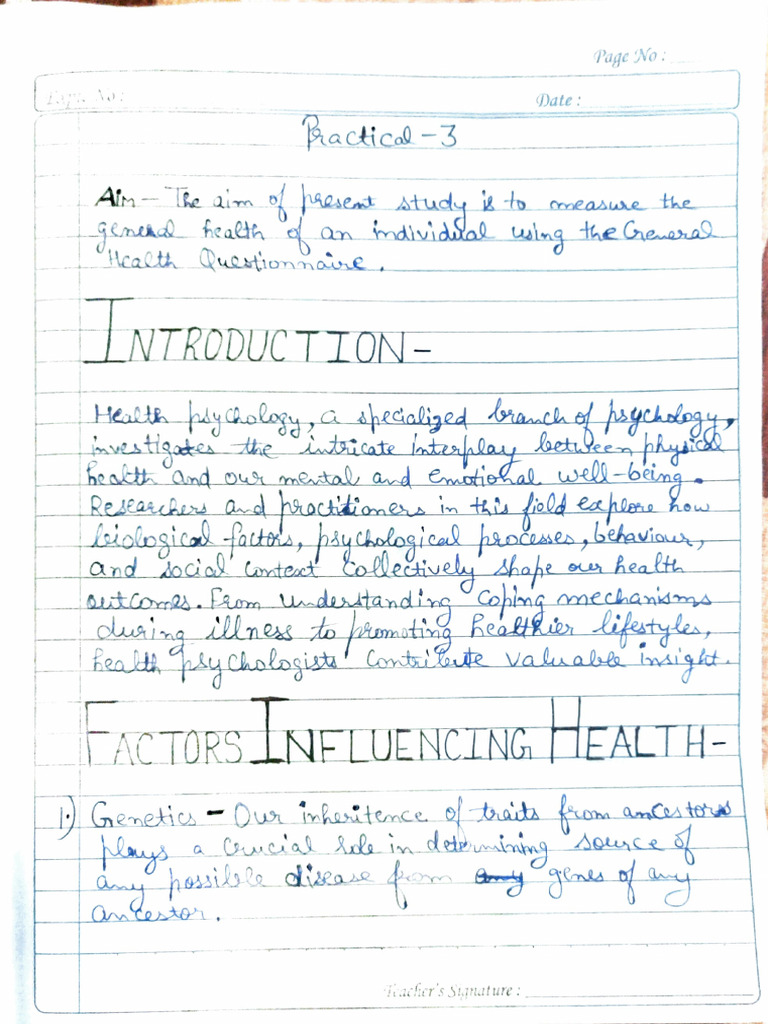 Page No :
Expt. No :
Date :
Practical - 3
Aim - The aim of present study is to measure the
general health of an individual using the General
Health Questionnaire.
INTRODUCTION -
Health psychology, a specialized branch of psychology,
investigates the intricate interplay between physical
health and our mental and emotional well-being.
Researchers and practitioners in this field explore how
biological factors, psychological processes, behaviour,
and social context collectively shape our health
outcomes. From understanding coping mechanisms
during illness to promoting healthier lifestyles,
health psychologists contribute valuable insight.
FACTORS INFLUENCING HEALTH -
1.) Genetics - Our inheritence of traits from ancestors
plays a crucial role in determining source of
any possible disease from any genes of any
ancestor.
Teacher's Signature :